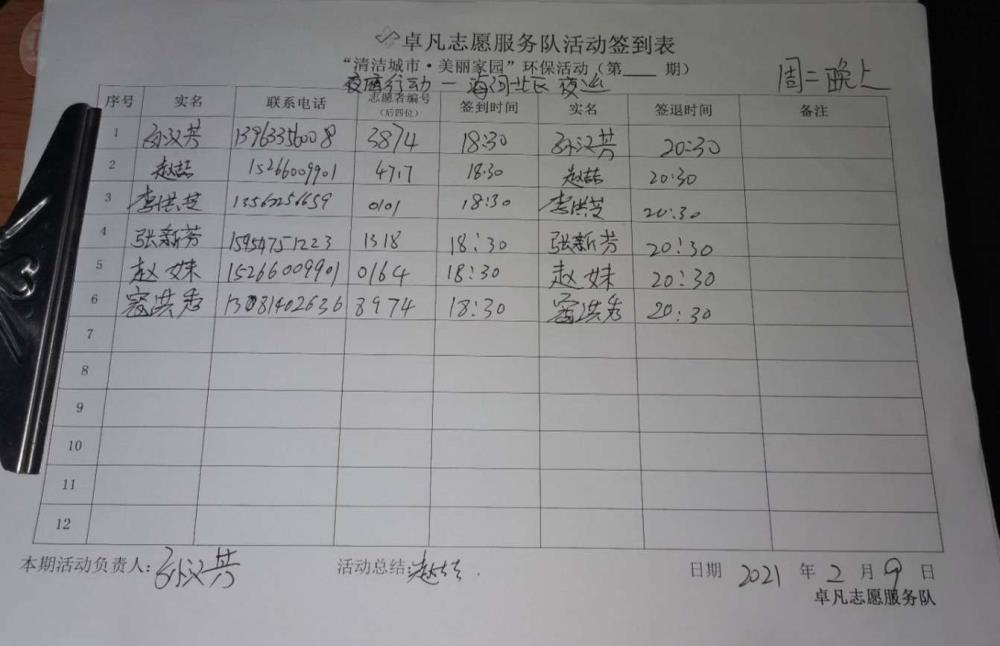 卓凡志愿服务队活动签到表
“清洁城市·美丽家园”环保活动（第 期）
夜鹰行动一海河北区夜巡 周二晚上
序号 实名 联系电话 志愿者编号（后四位） 签到时间 实名 签退时间 备注
1 孙汉芳 13963356008 3874 18:30 孙汉芳 20:30
2 赵喆 15266009901 4717 18:30 赵喆 20:30
3 李洪芝 13563256659 0101 18:30 李洪芝 20:30
4 张新芳 15954751223 1318 18:30 张新芳 20:30
5 赵妹 15266009901 0164 18:30 赵妹 20:30
6 寇洪秀 13081402636 3974 18:30 寇洪秀 20:30
7
8
9
10
11
12
本期活动负责人：孙汉芳 活动总结：赵喆. 日期 2021 年 2 月 9 日
卓凡志愿服务队